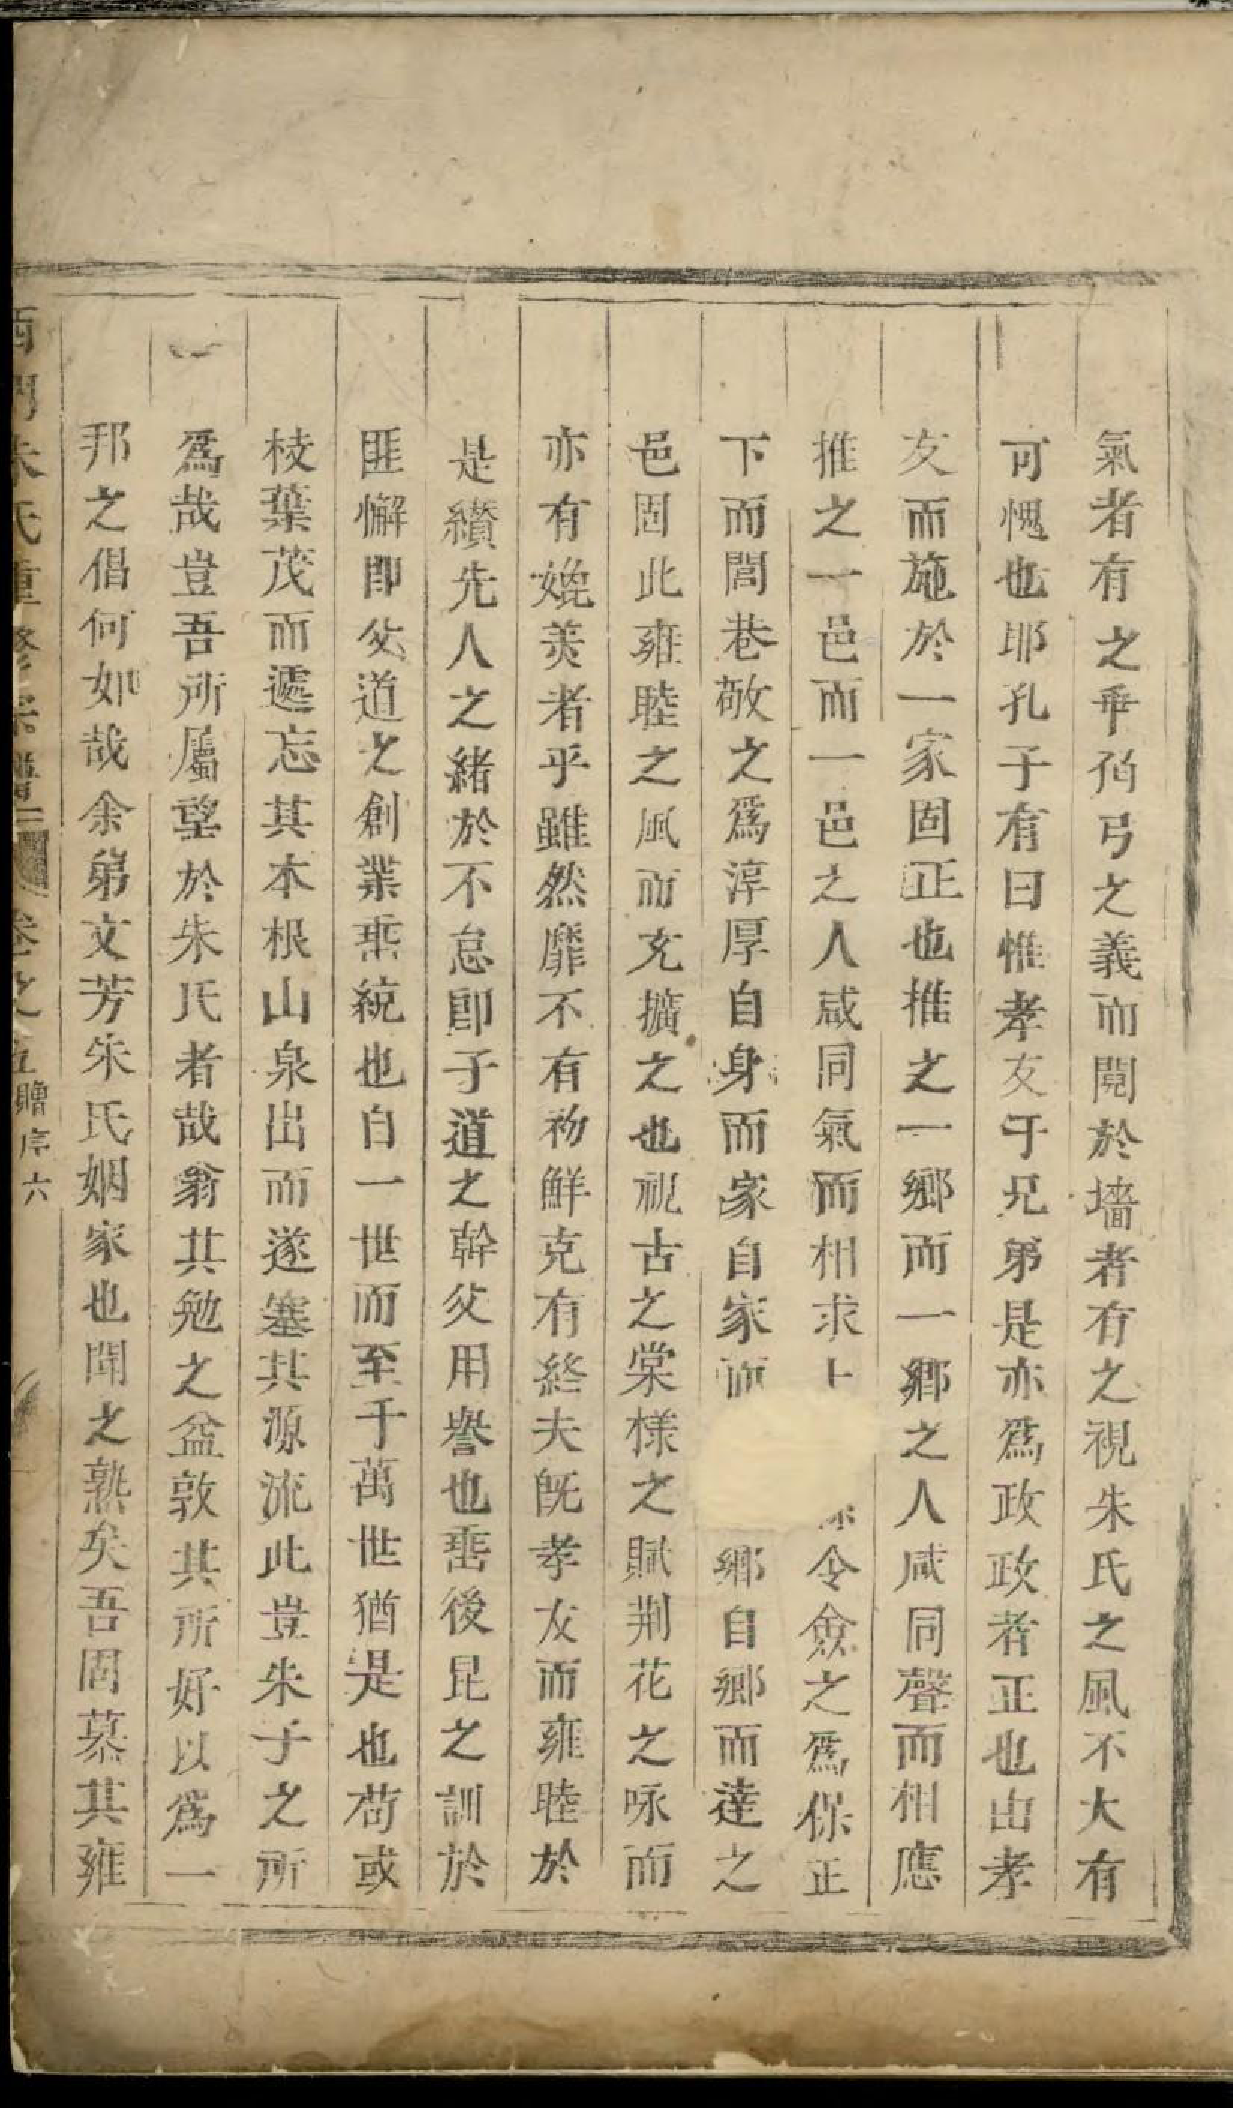 氣者有之乖角弓之義而鬩於墻者有之視朱氏之風不大有
可愧也耶孔子有曰惟孝友于兄弟是亦爲政政者正也出孝
友而施於一家固正也推之一鄉而一鄉之人咸同聲而相應
推之一邑而一邑之人咸同氣而相求上令僉之爲保正
下而閭巷敬之爲淳厚自身而家自家而鄉自鄉而達之
邑固此雍睦之風而充擴之也視古之棠棣之賦荆花之咏而
亦有媲美者乎雖然靡不有初鮮克有終夫旣孝友而雍睦於
是纘先人之緒於不怠卽子道之幹父用譽也垂後昆之訓於
匪懈卽父道之創業垂統也自一世而至于萬世猶是也苟或
枝葉茂而遽忘其本根山泉出而遂塞其源流此豈朱子之所
爲哉豈吾所屬望於朱氏者哉翁其勉之益敦其所好以爲一
邦之倡何如哉余弟文芳朱氏姻家也聞之熟矣吾固慕其雍
西門朱氏重修宗譜 卷之五 贈序 六